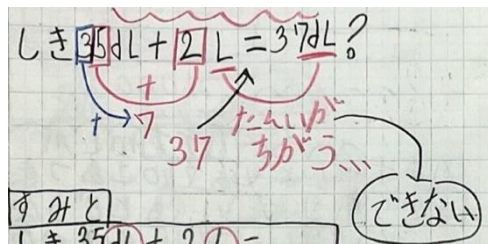 しき35dL+2L=37dL?
+
+
7
37
たんいが
ちがう…
できない
すみと
しき35dL+2L=